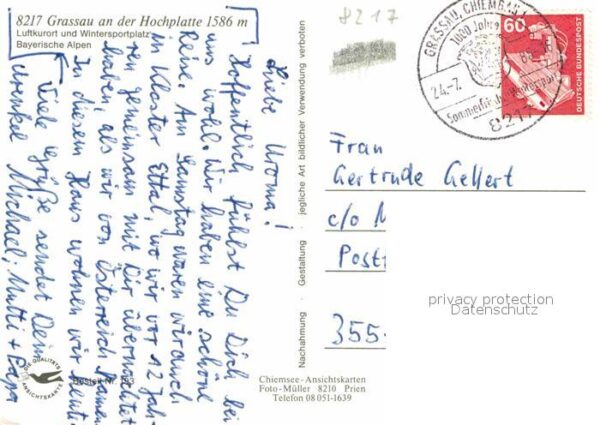 8217 Grassau an der Hochplatte 1586 m
Luftkurort und Wintersportplatz
Bayerische Alpen
Liebe Uroma!
Hoffentlich fühlst Du Dich bei
uns wohl. Wir haben eine schöne
Reise. Am Samstag waren wir auch
in Kloster Ettal, wo wir vor 12 Jah-
ren gemeinsam mit Dir übernachtet
haben, als wir von Österreich kamen.
In diesem Haus wohnen wir heute.
Viele Grüße sendet Dein
Urenkel Michael, Mutti + Papa
DIE QUALITÄTS
ANSICHTSKARTE
Bestell Nr. 193
Nachahmung · Gestaltung · jegliche Art bildlicher Verwendung verboten
Chiemsee-Ansichtskarten
Foto-Müller 8210 Prien
Telefon 08051-1639
8217
GRASSAU, CHIEMGAU
1000 Jahre
24.-7.
Sommerfrische Wintersport
8217
60
DEUTSCHE BUNDESPOST
Frau
Gertrude Gellert
c/o M
Post
355-
privacy protection
Datenschutz